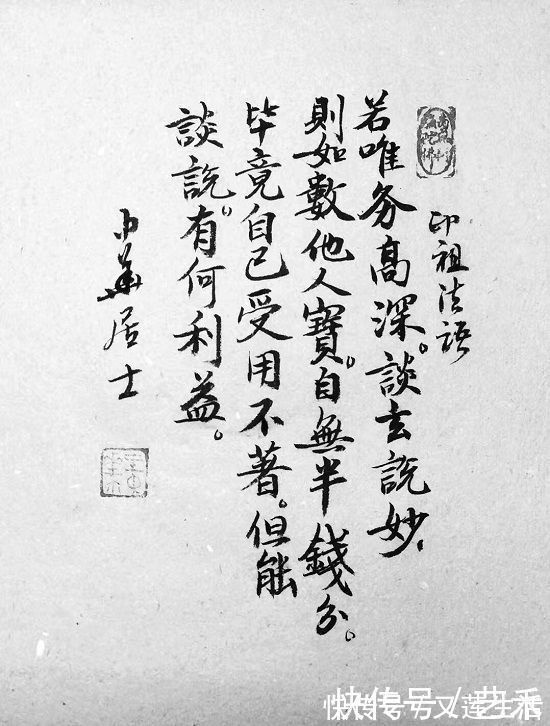 印祖法語
若唯务高深。談玄說妙、
則如數他人寶。自無半錢分。
毕竟自已受用不著。但能
談說。有何利益。
小華居士
快传号/艺禾